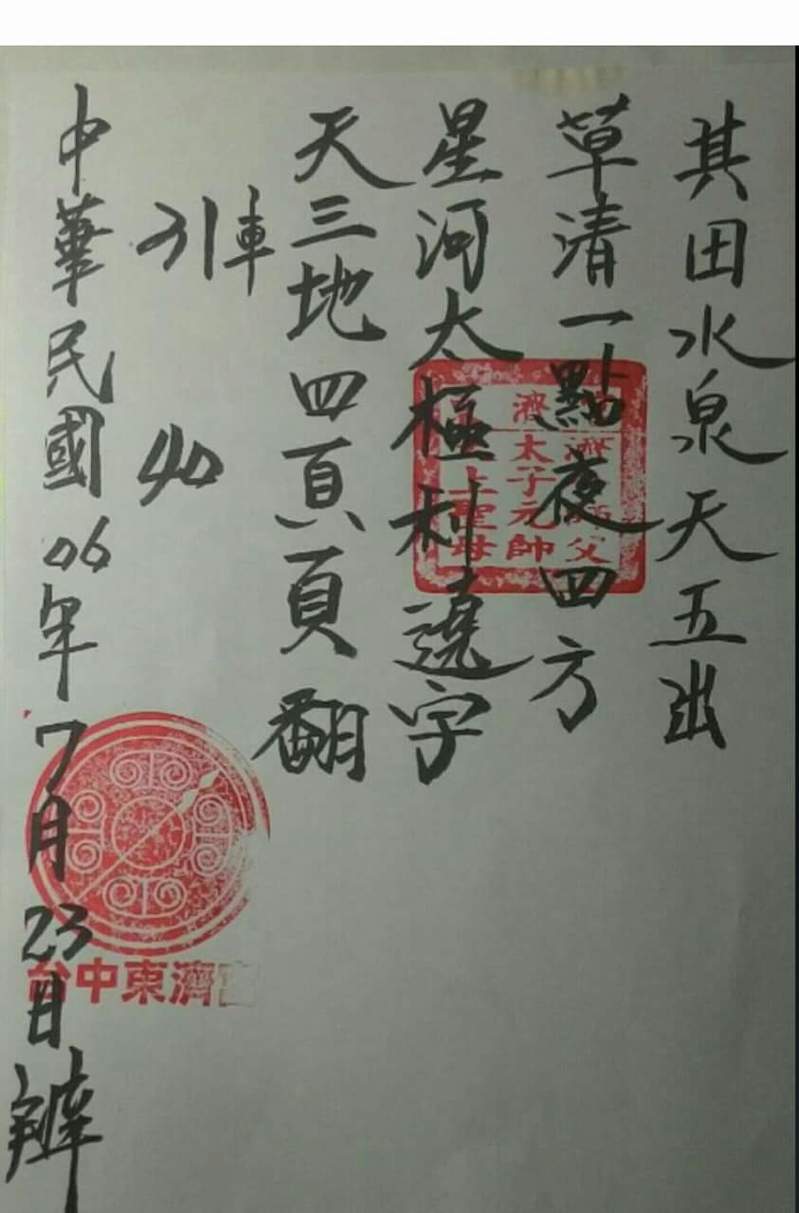 其田水泉天五出
草清一點夜四方
星河太極利遶字
天三地四頁頁翻
引車 40
中華民國106年7月23日辦
濟 太子元帥
師父
上聖母
台中東濟宮